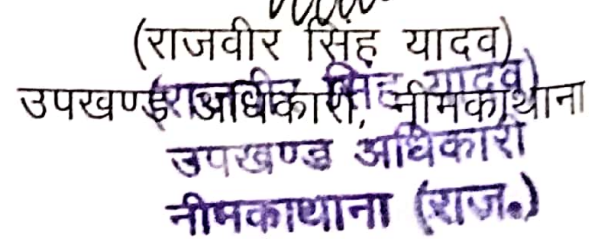 (राजवीर सिंह यादव)
उपखण्ड अधिकारी, नीमकाथाना
(राजवीर सिंह यादव)
उपखण्ड अधिकारी
नीमकाथाना (राज०)